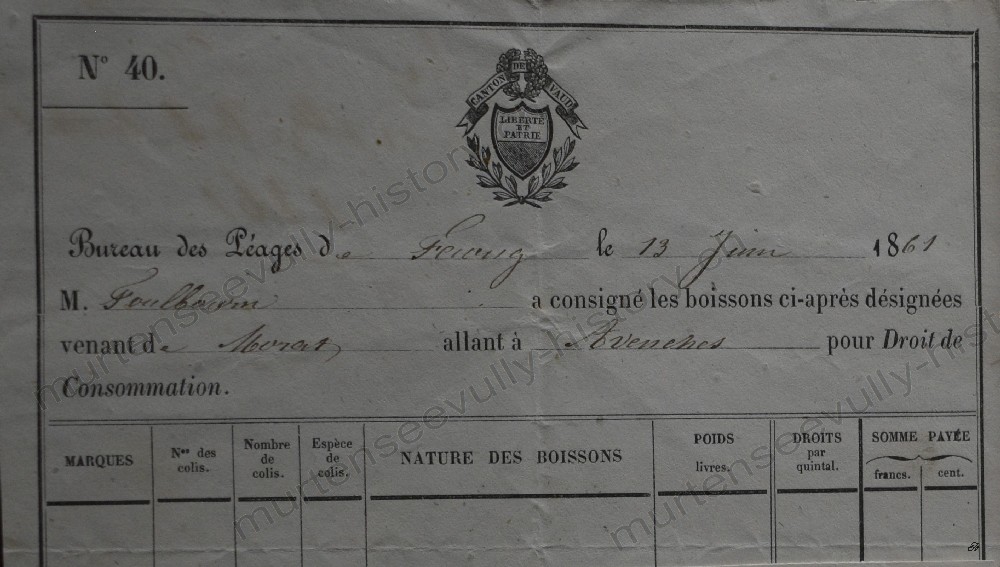 N° 40.
CANTON DE VAUD
LIBERTÉ
ET
PATRIE
Bureau des Péages de Faoug le 13 Juin 1861
M. a consigné les boissons ci-après désignées
venant de Morat allant à Avenches pour Droit de
Consommation.
MARQUES
Nos des
colis.
Nombre
de
colis.
Espèce
de
colis.
NATURE DES BOISSONS
POIDS
livres.
DROITS
par
quintal.
SOMME PAYÉE
francs.
cent.
murtenseevully-history
murtenseevully-history
murtenseevully-history